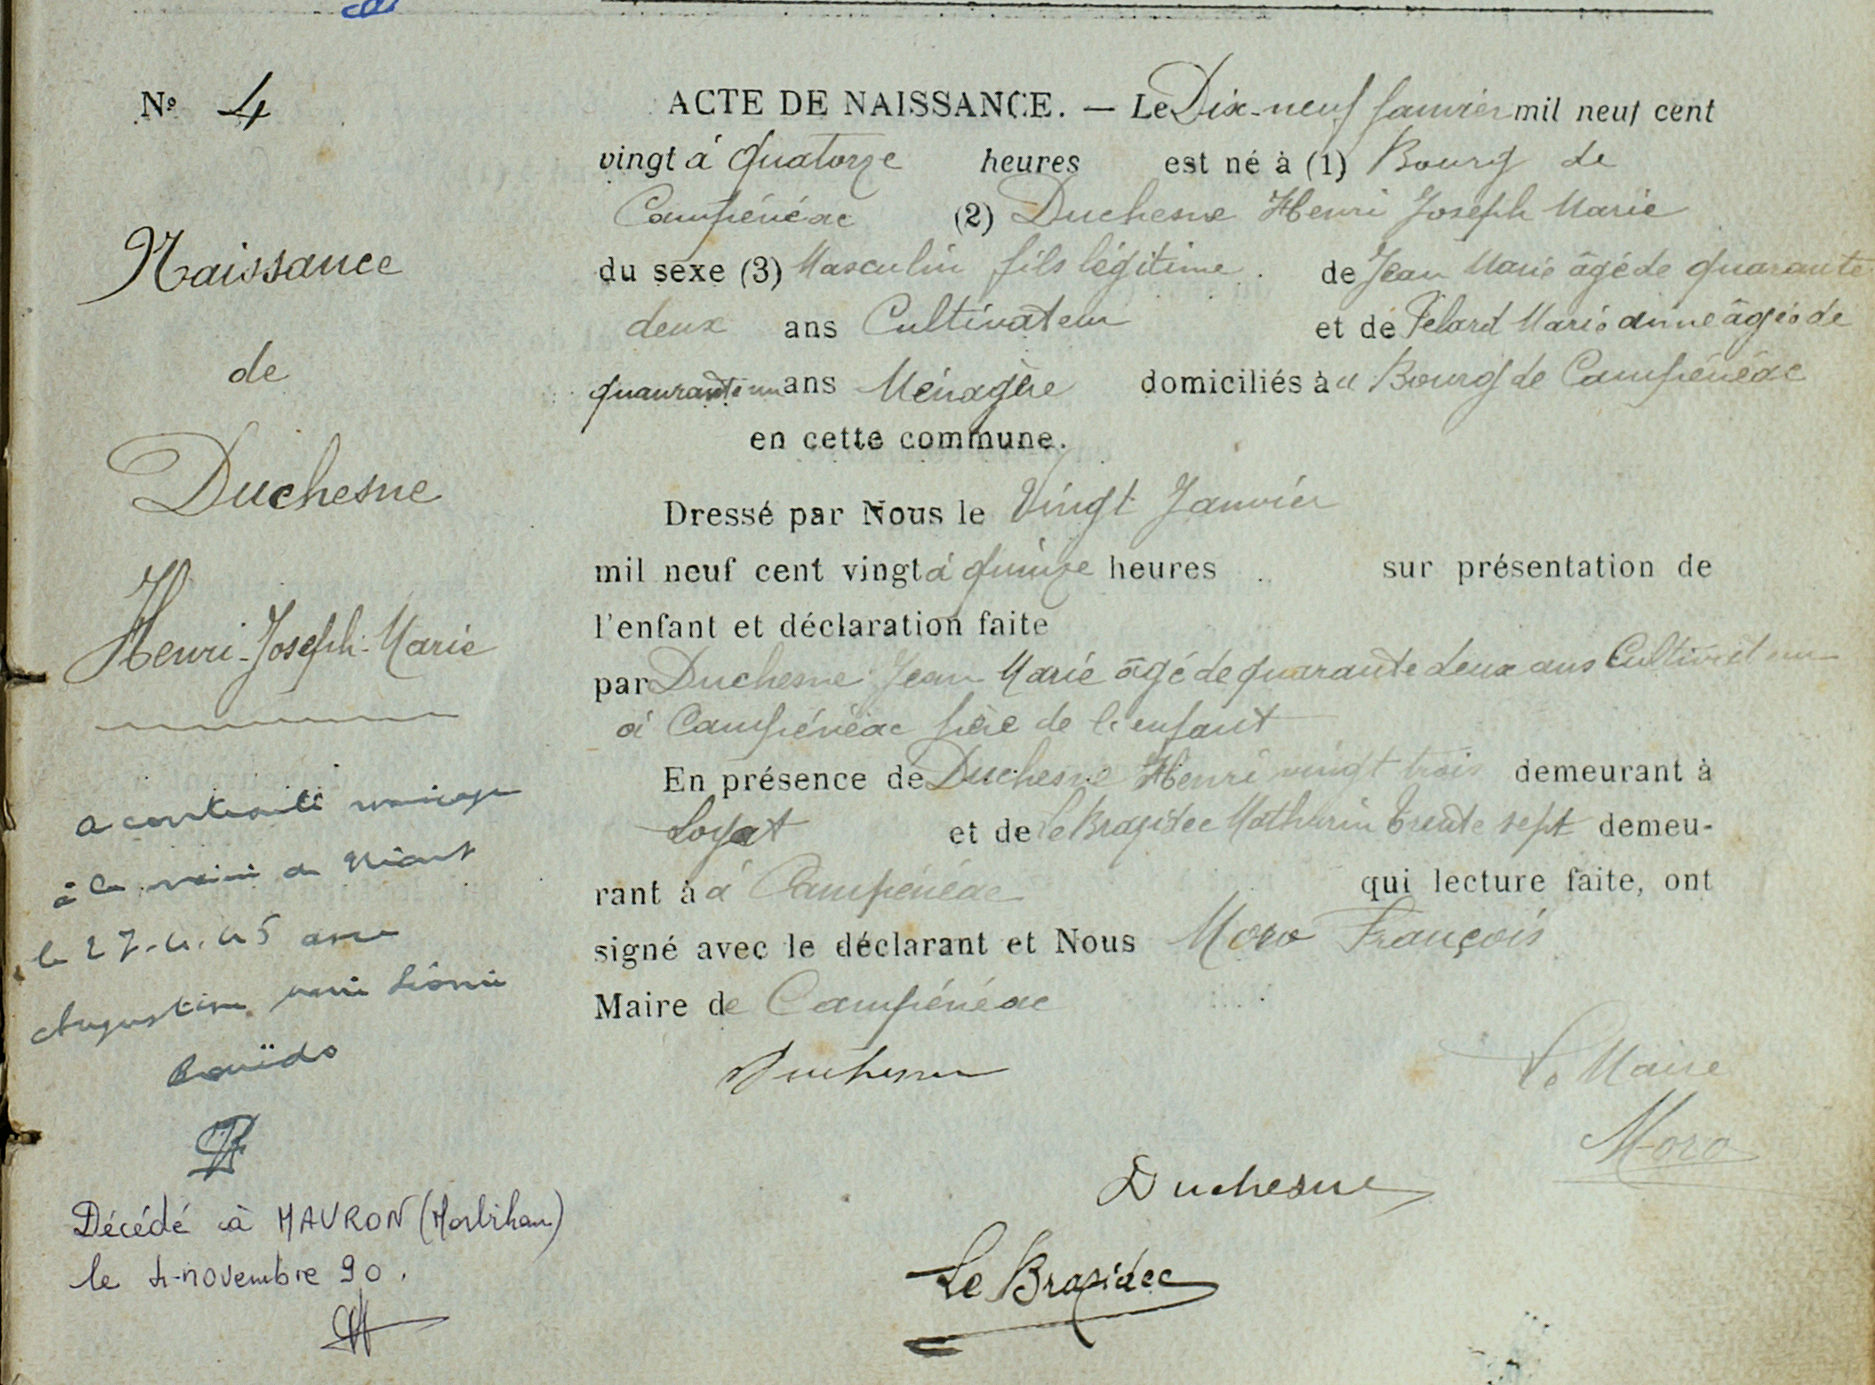 N° 4
Naissance
de
Duchesne
Henri-Joseph-Marie
a contracté mariage
à la mairie de
le 27.4.45 avec
Augustine Marie Léonie
Décédé à MAURON (Morbihan)
le 4-novembre 90.
ACTE DE NAISSANCE. — Le Dix-neuf Janvier mil neuf cent
vingt à quatorze heures est né à (1) Bourg de
Campénéac (2) Duchesne Henri Joseph Marie
du sexe (3) Masculin fils légitime. de Jean Marie âgé de quarante
deux ans Cultivateur et de Pelard Marie anne âgée de
quaurante un ans Ménagère domiciliés à u Bourg de Campénéac
en cette commune.
Dressé par Nous le Vingt Janvier
mil neuf cent vingt à quinze heures sur présentation de
l'enfant et déclaration faite
par Duchesne Jean Marie âgé de quarante deux ans Cultivateur
à Campénéac père de l'enfant
En présence de Duchesne Henri vingt trois demeurant à
Loyat et de Le Brazidec Mathurin trente sept demeu-
rant à à Campénéac qui lecture faite, ont
signé avec le déclarant et Nous Moro François
Maire de Campénéac
Duchesne
Le Maire
Moro
Duchesne
Le Brazidec